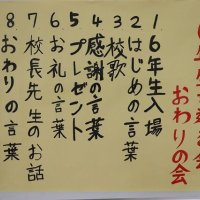 6年生を送る会
おわりの会
1 6年生入場
2 はじめの言葉
3 校歌
4 感謝の言葉
5 プレゼント
6 お礼の言葉
7 校長先生のお話
8 おわりの言葉